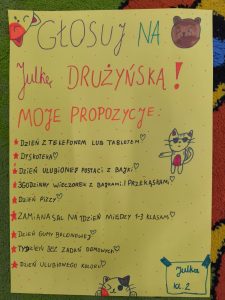 GŁOSUJ NA
Julkę DRUŻYŃSKĄ!
MOJE PROPOZYCJE:
DZIEŃ Z TELEFONEM LUB TABLETEM
DYSKOTEKA
DZIEŃ ULUBIONEJ POSTACI Z BAJKI
3GODZINNY WIECZOREK Z BAJKAMI I PRZEKĄSKAMI
DZIEŃ PIZZY
ZAMIANA SAL NA 1 DZIEŃ MIĘDZY 1-3 KLASAMI
DZIEŃ GUMY BALONOWEJ
TYDZIEŃ BEZ ZADAŃ DOMOWYCH
DZIEŃ ULUBIONEGO KOLORU
Julka
kl. 2